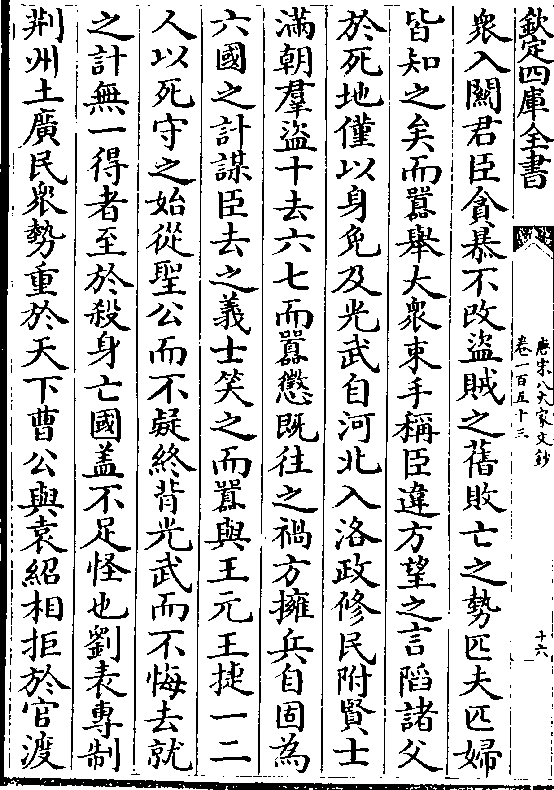 欽定四庫全書
唐宋八大家文鈔
卷一百五十三
十六
衆入關君臣貪暴不改盜賊之舊敗亡之勢匹夫匹婦
皆知之矣而囂舉大衆束手稱臣違方望之言陷諸父
於死地僅以身免及光武自河北入洛政修民附賢士
滿朝羣盜十去六七而囂懲既往之禍方擁兵自固為
六國之計謀臣去之義士笑之而囂與王元王捷一二
人以死守之始從聖公而不疑終背光武而不悔去就
之計無一得者至於殺身亡國盖不足怪也劉表專制
荆州土廣民衆勢重於天下曹公與袁紹相拒於官渡